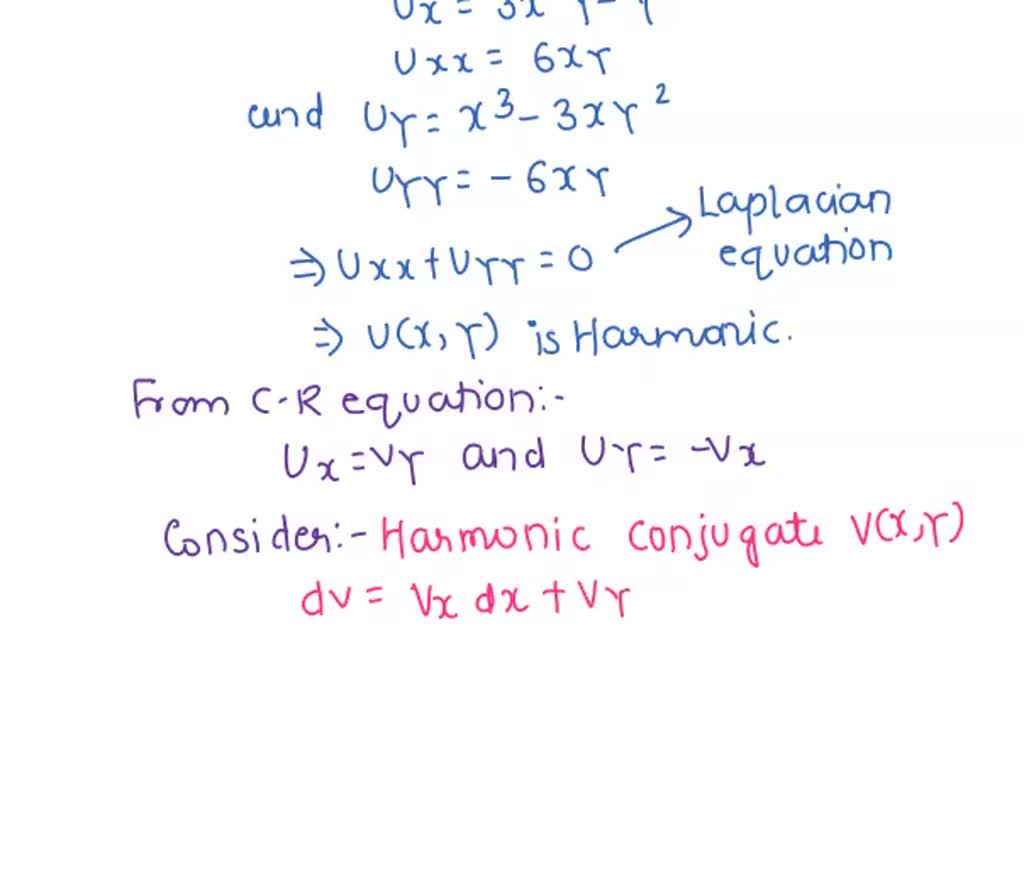 Ux = 3x
Uxx = 6xy
and Uy = x³ - 3xy²
Uyy = - 6xy
⇒ Uxx + Uyy = 0 → Laplacian equation
⇒ U(x, y) is Harmonic.
From C-R equation:-
Ux = Vy and Uy = -Vx
Consider:- Harmonic conjugate V(x,y)
dv = Vx dx + Vy